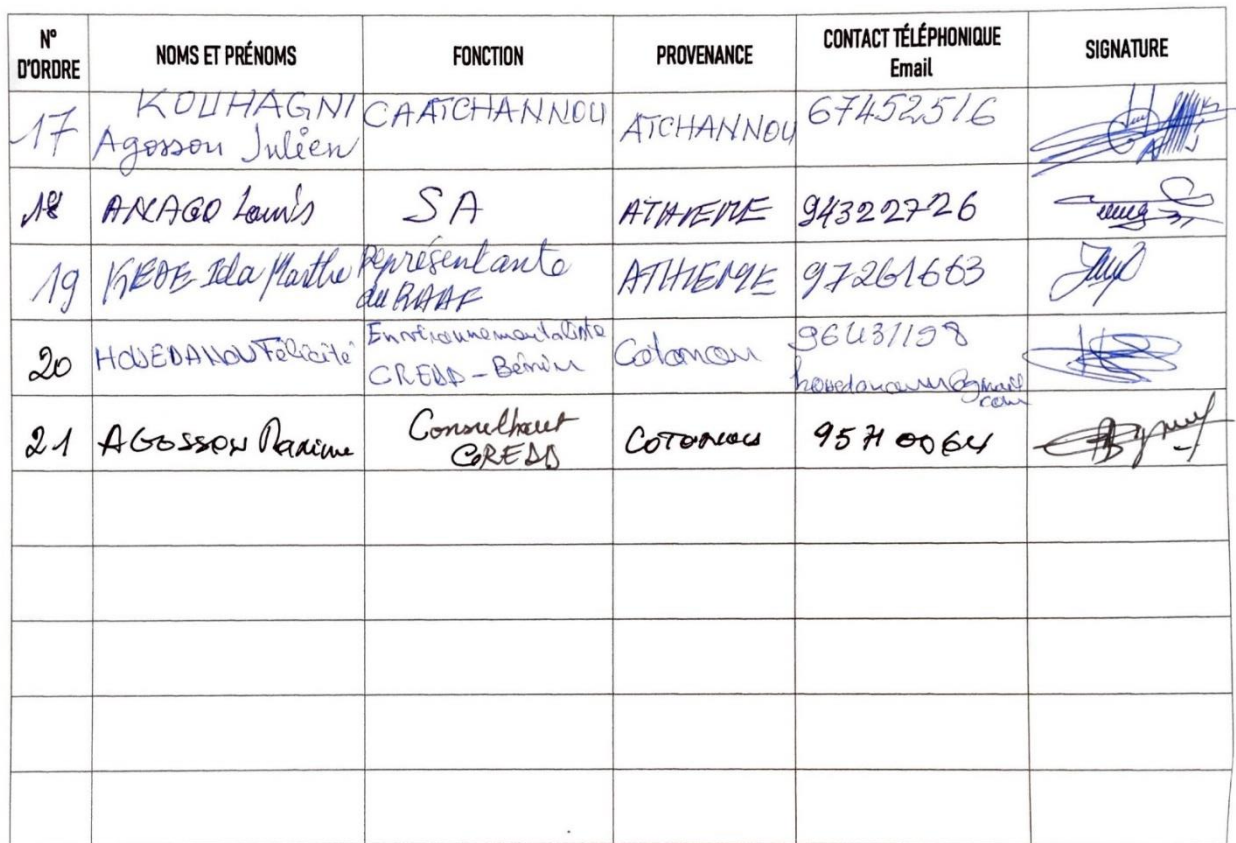 N° D'ORDRE NOMS ET PRÉNOMS FONCTION PROVENANCE CONTACT TÉLÉPHONIQUE Email SIGNATURE
17 KOUHAGNI Agosson Julien CA ATCHANNOU ATCHANNOU 67452516
18 ANAGO Louis SA ATHIEME 94322726
19 KEDE Ida Marthe Représentante du RAAF ATHIEME 97261663
20 HOUEDANOU Félicité Environnementaliste CREDD-Bénin Cotonou 96431198
21 AGOSSOU Maxime Consultant CREDD COTONOU 95710064